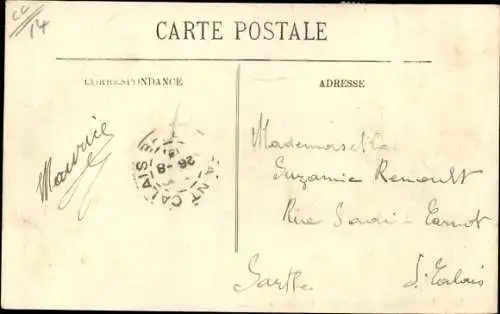 CC
14
CARTE POSTALE
CORRESPONDANCE
ADRESSE
Maurice
SAINT-CALAIS
26-8
Mademoiselle
Suzanne Renoult
Rue Sadi-Carnot
Sarthe St Calais